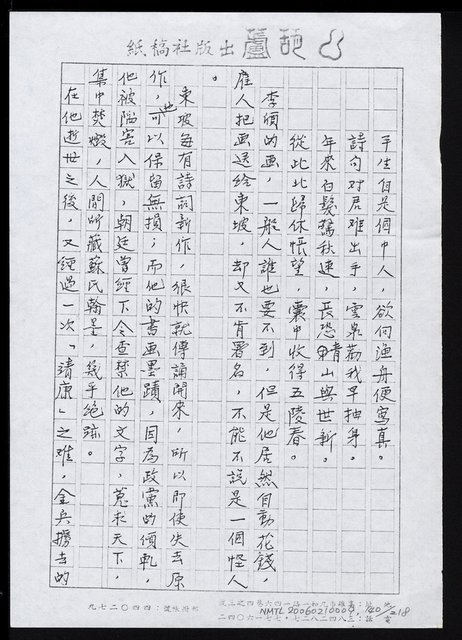 紙稿社版出蘆葫山
平生自是個中人，欲向漁舟便寫真。
詩句对君难出手，雲泉勸我早抽身。
年來白髮驚秋速，長恐青山與世新。
從此北歸休悵望，囊中收得五陵春。
李頎的画，一般人誰也要不到，但是他居然自動花錢，
雇人把画送給東坡，却又不肯署名，不能不說是一個怪人
。
東坡每有詩詞新作，很快就傳誦開來，所以即使失去原
作，也可以保留無損；而他的書画墨蹟，因為政黨的傾軋，
他被陷害入獄，朝廷曾經下令查禁他的文字，蒐求天下，
集中焚燬，人間所藏蘇氏翰墨，幾乎絕跡。
在他逝世之後，又經過一次「靖康」之难，金兵擄去的
NMTL20060210009, 140/218
九七二〇四四：號帳撥郵